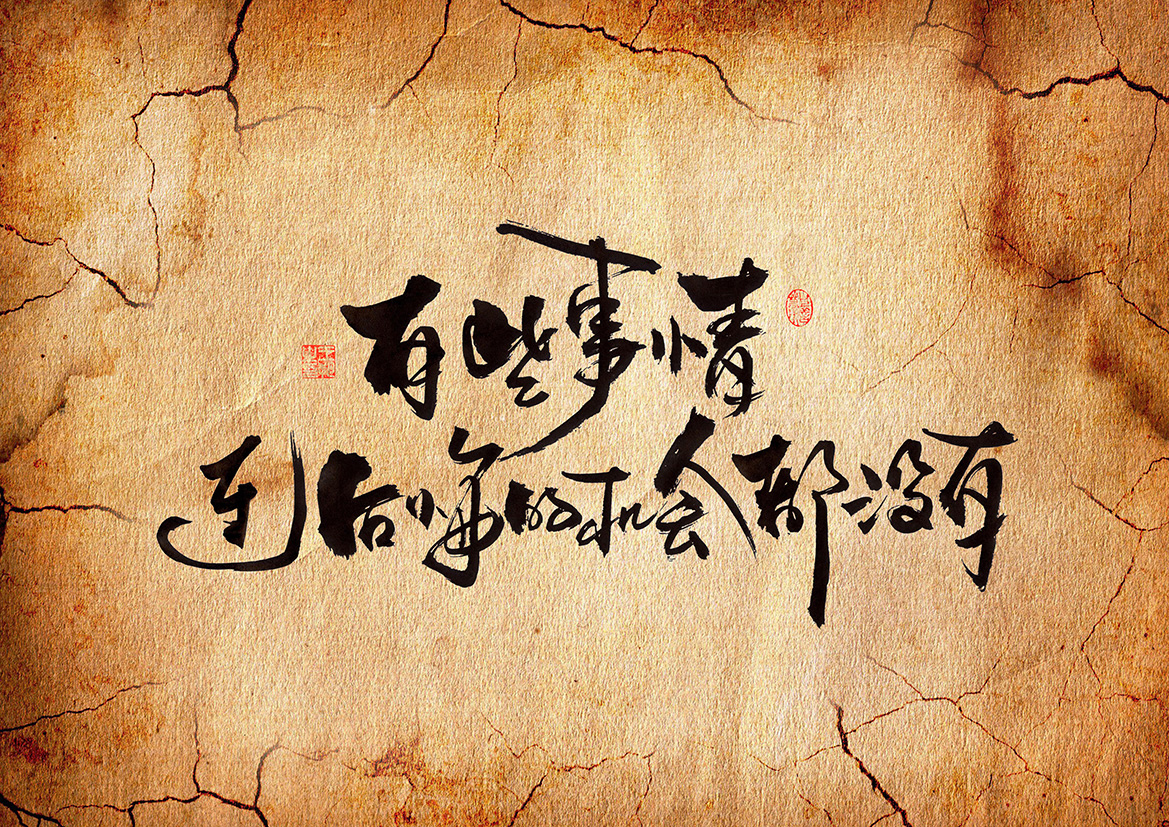 有些事情
连后悔的机会都没有